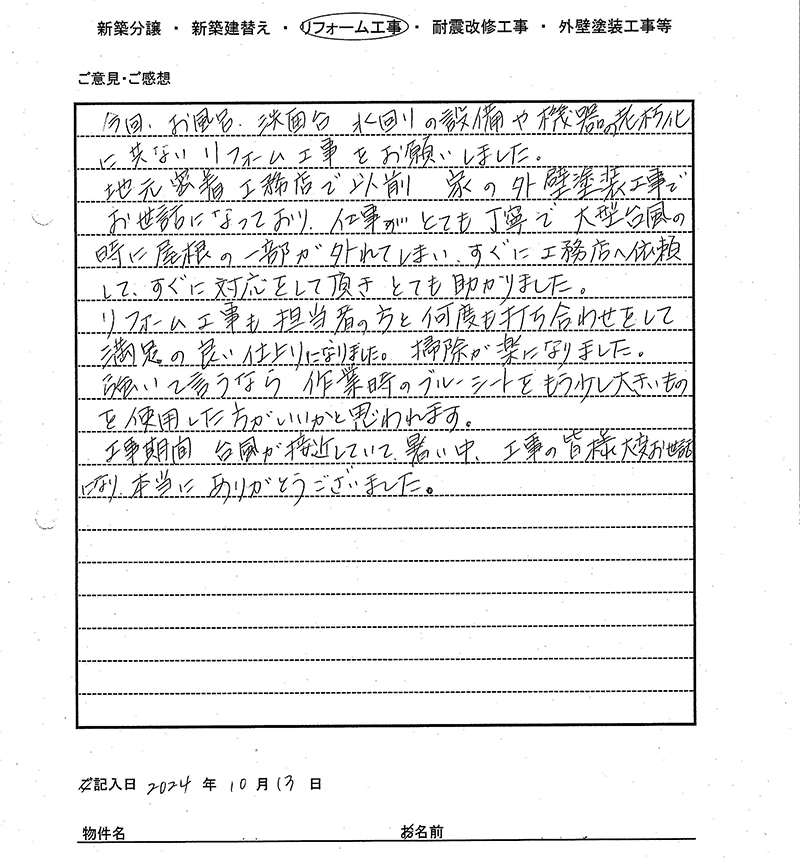 新築分譲 ・ 新築建替え ・ リフォーム工事 ・ 耐震改修工事 ・ 外壁塗装工事等
ご意見・ご感想
今回、お風呂、洗面台 水回りの設備や機器の老朽化
に共ない リフォーム工事をお願いしました。
地元密着工務店で以前 家の外壁塗装工事で
お世話になっており、仕事がとても丁寧で 大型台風の
時に屋根の一部が外れてしまい、すぐに工務店へ依頼
して、すぐに対応をして頂き とても助かりました。
リフォーム工事も担当者の方と何度も打ち合わせをして
満足の良い仕上りになりました。掃除が楽になりました。
強いて言うなら 作業時のブルーシートをもう少し大きいもの
を使用した方がいいかと思われます。
工事期間 台風が接近していて、暑い中、工事の皆様大変お世話
になり、本当に ありがとうございました。
ご記入日 2024 年 10 月 13 日
物件名 お名前